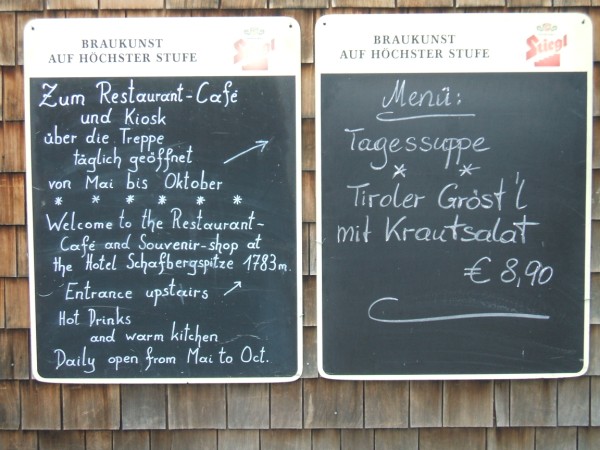 BRAUKUNST
AUF HÖCHSTER STUFE
Stiegl
Zum Restaurant-Café
und Kiosk
über die Treppe
täglich geöffnet
von Mai bis Oktober
* * * * * *
Welcome to the Restaurant-
Café and Souvenir-shop at
the Hotel Schafbergspitze 1783m.
Entrance upstairs
Hot Drinks
and warm kitchen
Daily open from Mai to Oct.
BRAUKUNST
AUF HÖCHSTER STUFE
Stiegl
Menü:
Tagessuppe
* *
Tiroler Gröst'l
mit Krautsalat
€ 8,90